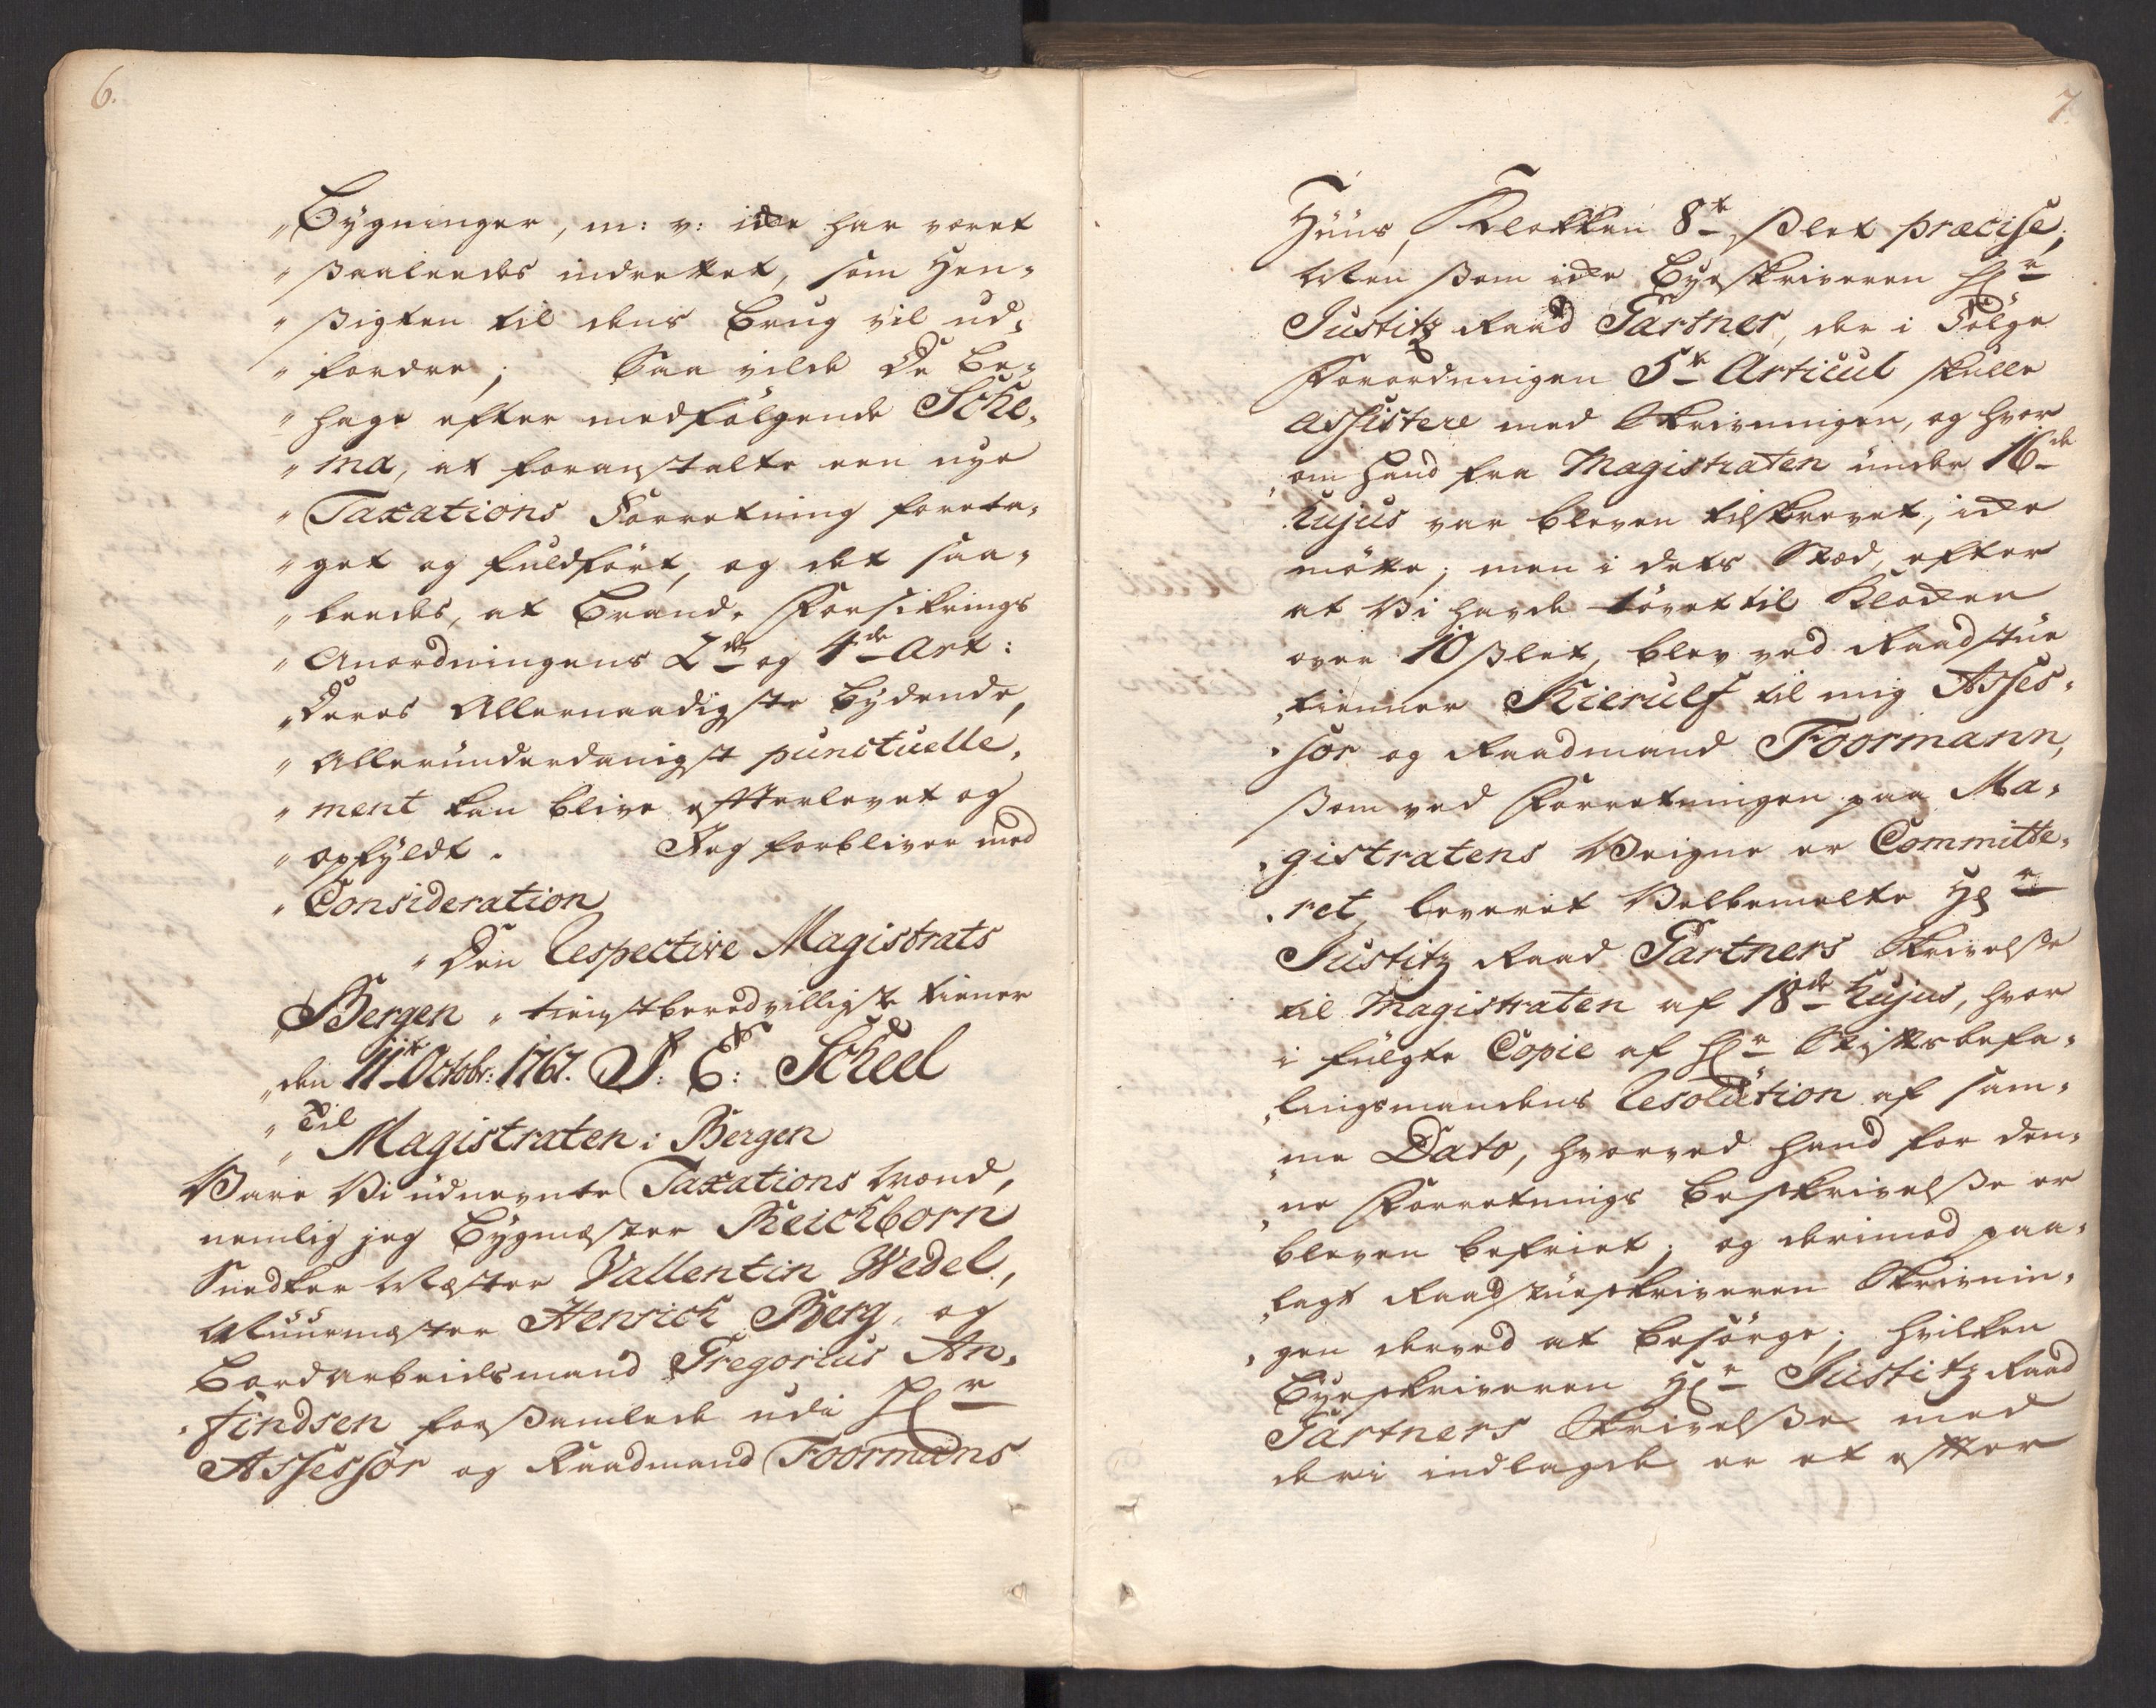 6.
"Bÿgninger, m: v: icke har været
"ßaaleedes indrettet, som Hen-
"ßigten til dens Brug vil ud-
"fordre; Saa vilde De be-
"hage efter medfölgende Sche-
"ma, at foranstalte een nÿe
"Taxations Forretning foreta-
"get og fuldfört, og det saa-
"leedes, at Brand-Forsikrings
"Anordningens 2den og 4de Art:
"Deres Allernaadigste bÿdende,
"Alleründerdanigst punctuelle-
"ment kan blive efterlevet og
"opfÿldt. Jeg forbliver med
"Consideration
"Den Respective Magistrats
"Bergen "tienstberedvilligste tiener
"den 11t Octobr: 1767. J: E: Scheel
"Til
"Magistraten i Bergen
Vare Vi üdnevnte Taxations Mænd,
nemlig jeg Bÿgmester Reichborn
Snedker Mester Vallentin Wedel,
Müürmester Henrich Berg, og
Bordarbeidsmand Gregorius An-
"findsen forßamlede udi Hr
Assessor og Raadmand Foormans
7.
Hüüs, Klokken 8t ßlet præcise;
Men ßom icke Bÿeskriveren Hr
Justitz Raad Gartner, der i Fölge
Forordningen 5t Articul skulle
assistere med Skrivningen, og hvor
"om hand fra Magistraten ünder 16de
hujus var bleven tilskrevet, icke
mötte; men i dets Stæd, efter
at Vi havde tövet til Klocken
over 10 ßlet, blev ved Raadstüe
"tienner Kierulf til mig Asses-
"sor og Raadmand Foormann,
ßom ved Forretningen paa Ma-
"gistratens Veigne er Committe-
"ret, leveret Velbemelte Hr
Justitz Raad Gartners Skrivelse
til Magistraten af 18de hujus, hvor
i fülgte Copie af Hr Stiftsbefa-
"lingsmandens Resolution af sam-
"me Dato, hvorved hand for den-
"ne Forretnings Beskrivelße er
bleven befriet; og derimod paa-
"lagt Raadstüeskriveren Skrivnin-
"gen derved at besörge; hvilken
Bÿeskriveren Hr Justitz Raad
Gartners Skrivelße med
deri indlagde er at efter